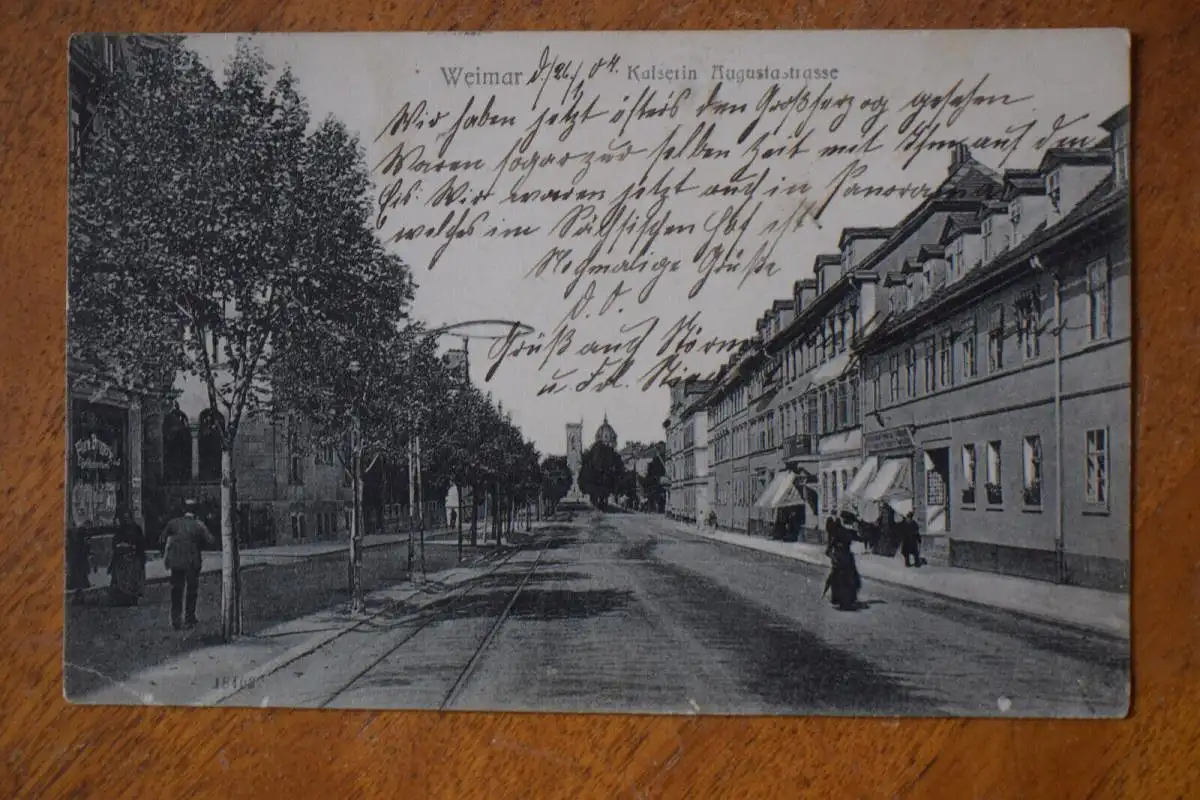 Weimar d/26/1 04. Kaiserin Augustastrasse
Wir haben jetzt öster's den Großherzog gesehen
Waren sogar zur selben Zeit mit Ihm auf dem
Eis. Wir waren jetzt auch in Panorama
welches im Sächsischen Hof ist.
Nochmalige Grüße
D. O.
Gruß auch
u. Frl.
18462